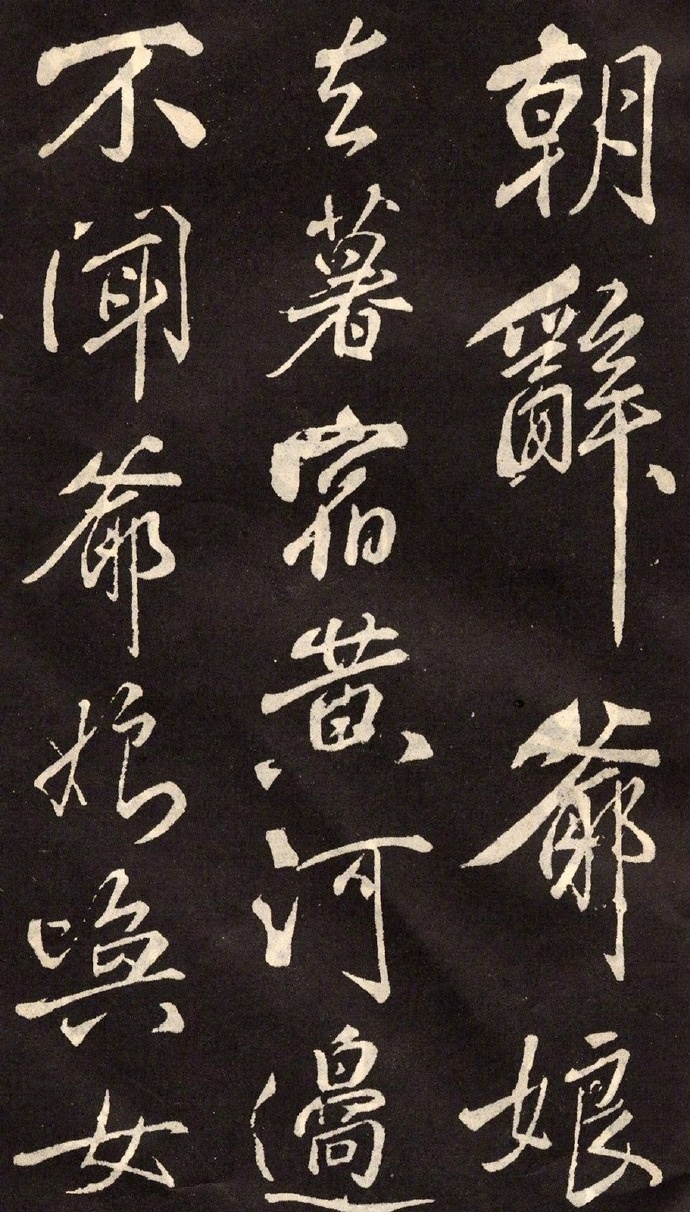 朝辭爺娘
去暮宿黄河邊
不聞爺娘喚女